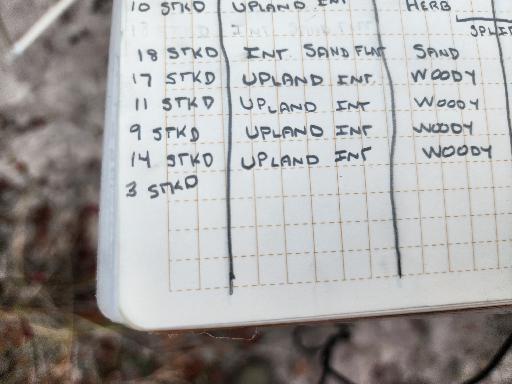 10 STKD UPLAND INT HERB
SPLIT
18 STKD INT SAND FLAT SAND
17 STKD UPLAND INT WOODY
11 STKD UPLAND INT WOODY
9 STKD UPLAND INT WOODY
14 STKD UPLAND INT WOODY
3 STKD